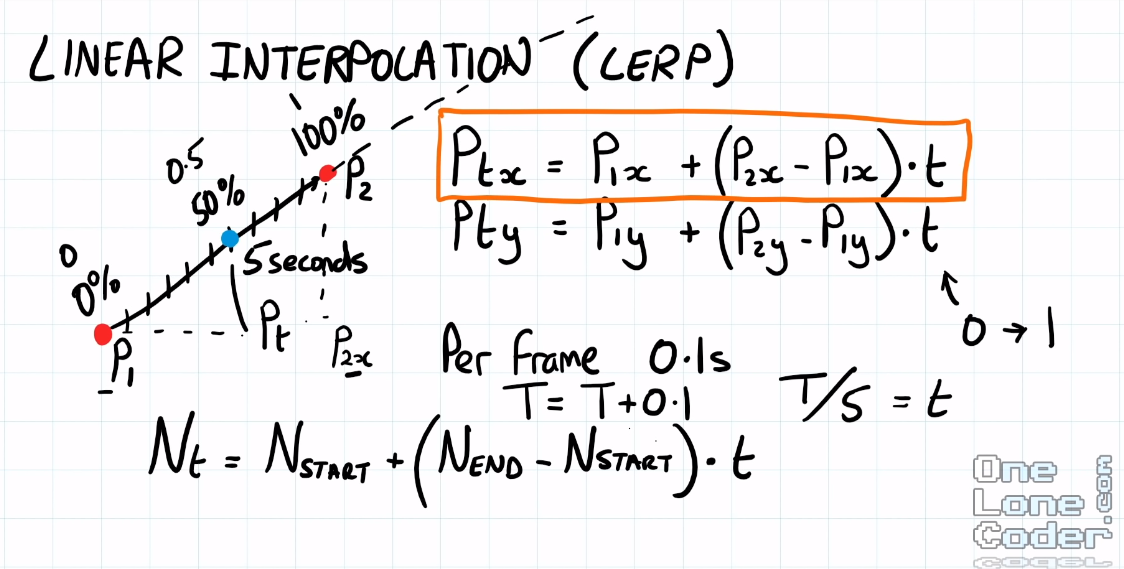 LINEAR INTERPOLATION (LERP)
100%
0.5
50%
P2
0
0%
5 seconds
P1
Pt
P2x
Ptx = P1x + (P2x - P1x) · t
Pty = P1y + (P2y - P1y) · t
0 → 1
Per frame 0.1s
T = T + 0.1
T/5 = t
Nt = NSTART + (NEND - NSTART) · t
One
Lone
Coder.com